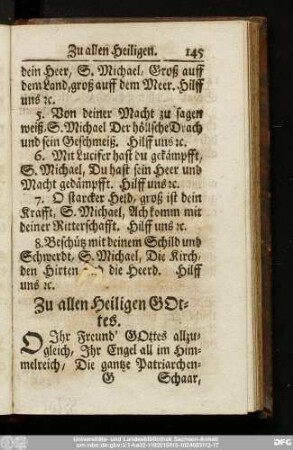 Zu allen Heiligen. 145
dein Heer, S. Michael, Groß auff
dem Land, groß auff dem Meer. Hilff
uns ꝛc.
5. Von deiner Macht zu sagen
weiß, S. Michael Der höllsche Drach
und sein Geschmeiß. Hilff uns ꝛc.
6. Mit Lucifer hast du gekämpfft,
S. Michael, Du hast sein Heer und
Macht gedämpfft. Hilff uns ꝛc.
7. O starcker Held, groß ist dein
Krafft, S. Michael, Ach komm mit
deiner Ritterschafft. Hilff uns ꝛc.
8. Beschütz mit deinem Schild und
Schwerdt, S. Michael, Die Kirch,
den Hirten die Heerd. Hilff
uns ꝛc.
Zu allen Heiligen GOt-
tes.
O Ihr Freund' GOttes allzu-
gleich, Ihr Engel all im Him-
melreich, Die gantze Patriarchen-
G Schaar,
Universitäts- und Landesbibliothek Sachsen-Anhalt